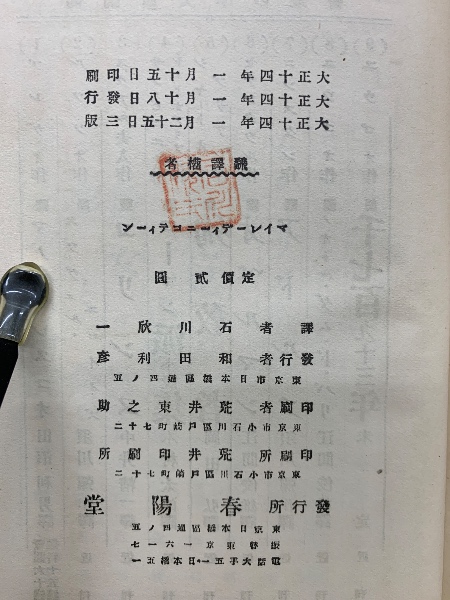 大正十四年一月十五日印刷
大正十四年一月十八日發行
大正十四年一月二十五日三版
飜譯權者
マイレーディーニコティーン
定價貳圓
譯者 石川欣一
發行者 和田利彥
東京市日本橋區通四ノ五
印刷者 荒井東之助
東京市小石川區戸崎町七十二
印刷所 荒井印刷所
東京市小石川區戸崎町七十二
發行所 春陽堂
東京日本橋區通四ノ五
振替東京一六一七
電話大手五一・日本橋五一